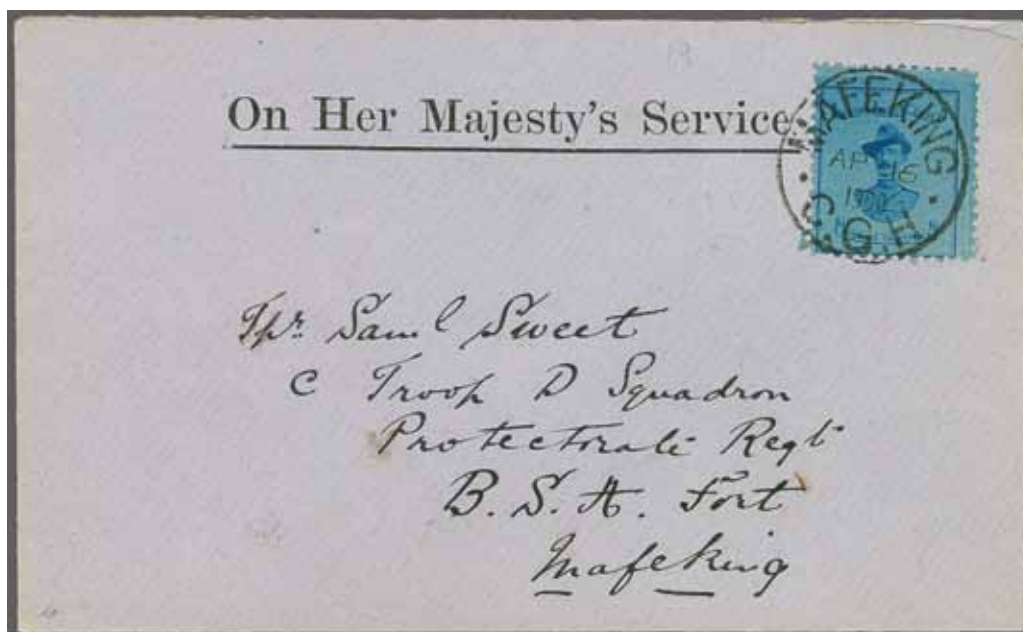 On Her Majesty's Service
MAFEKING
AP 16
1900
C.G.H.
Tpr. Saml Sweet
C Troop D Squadron
Protectorate Regt
B. S. A. Fort
Mafeking